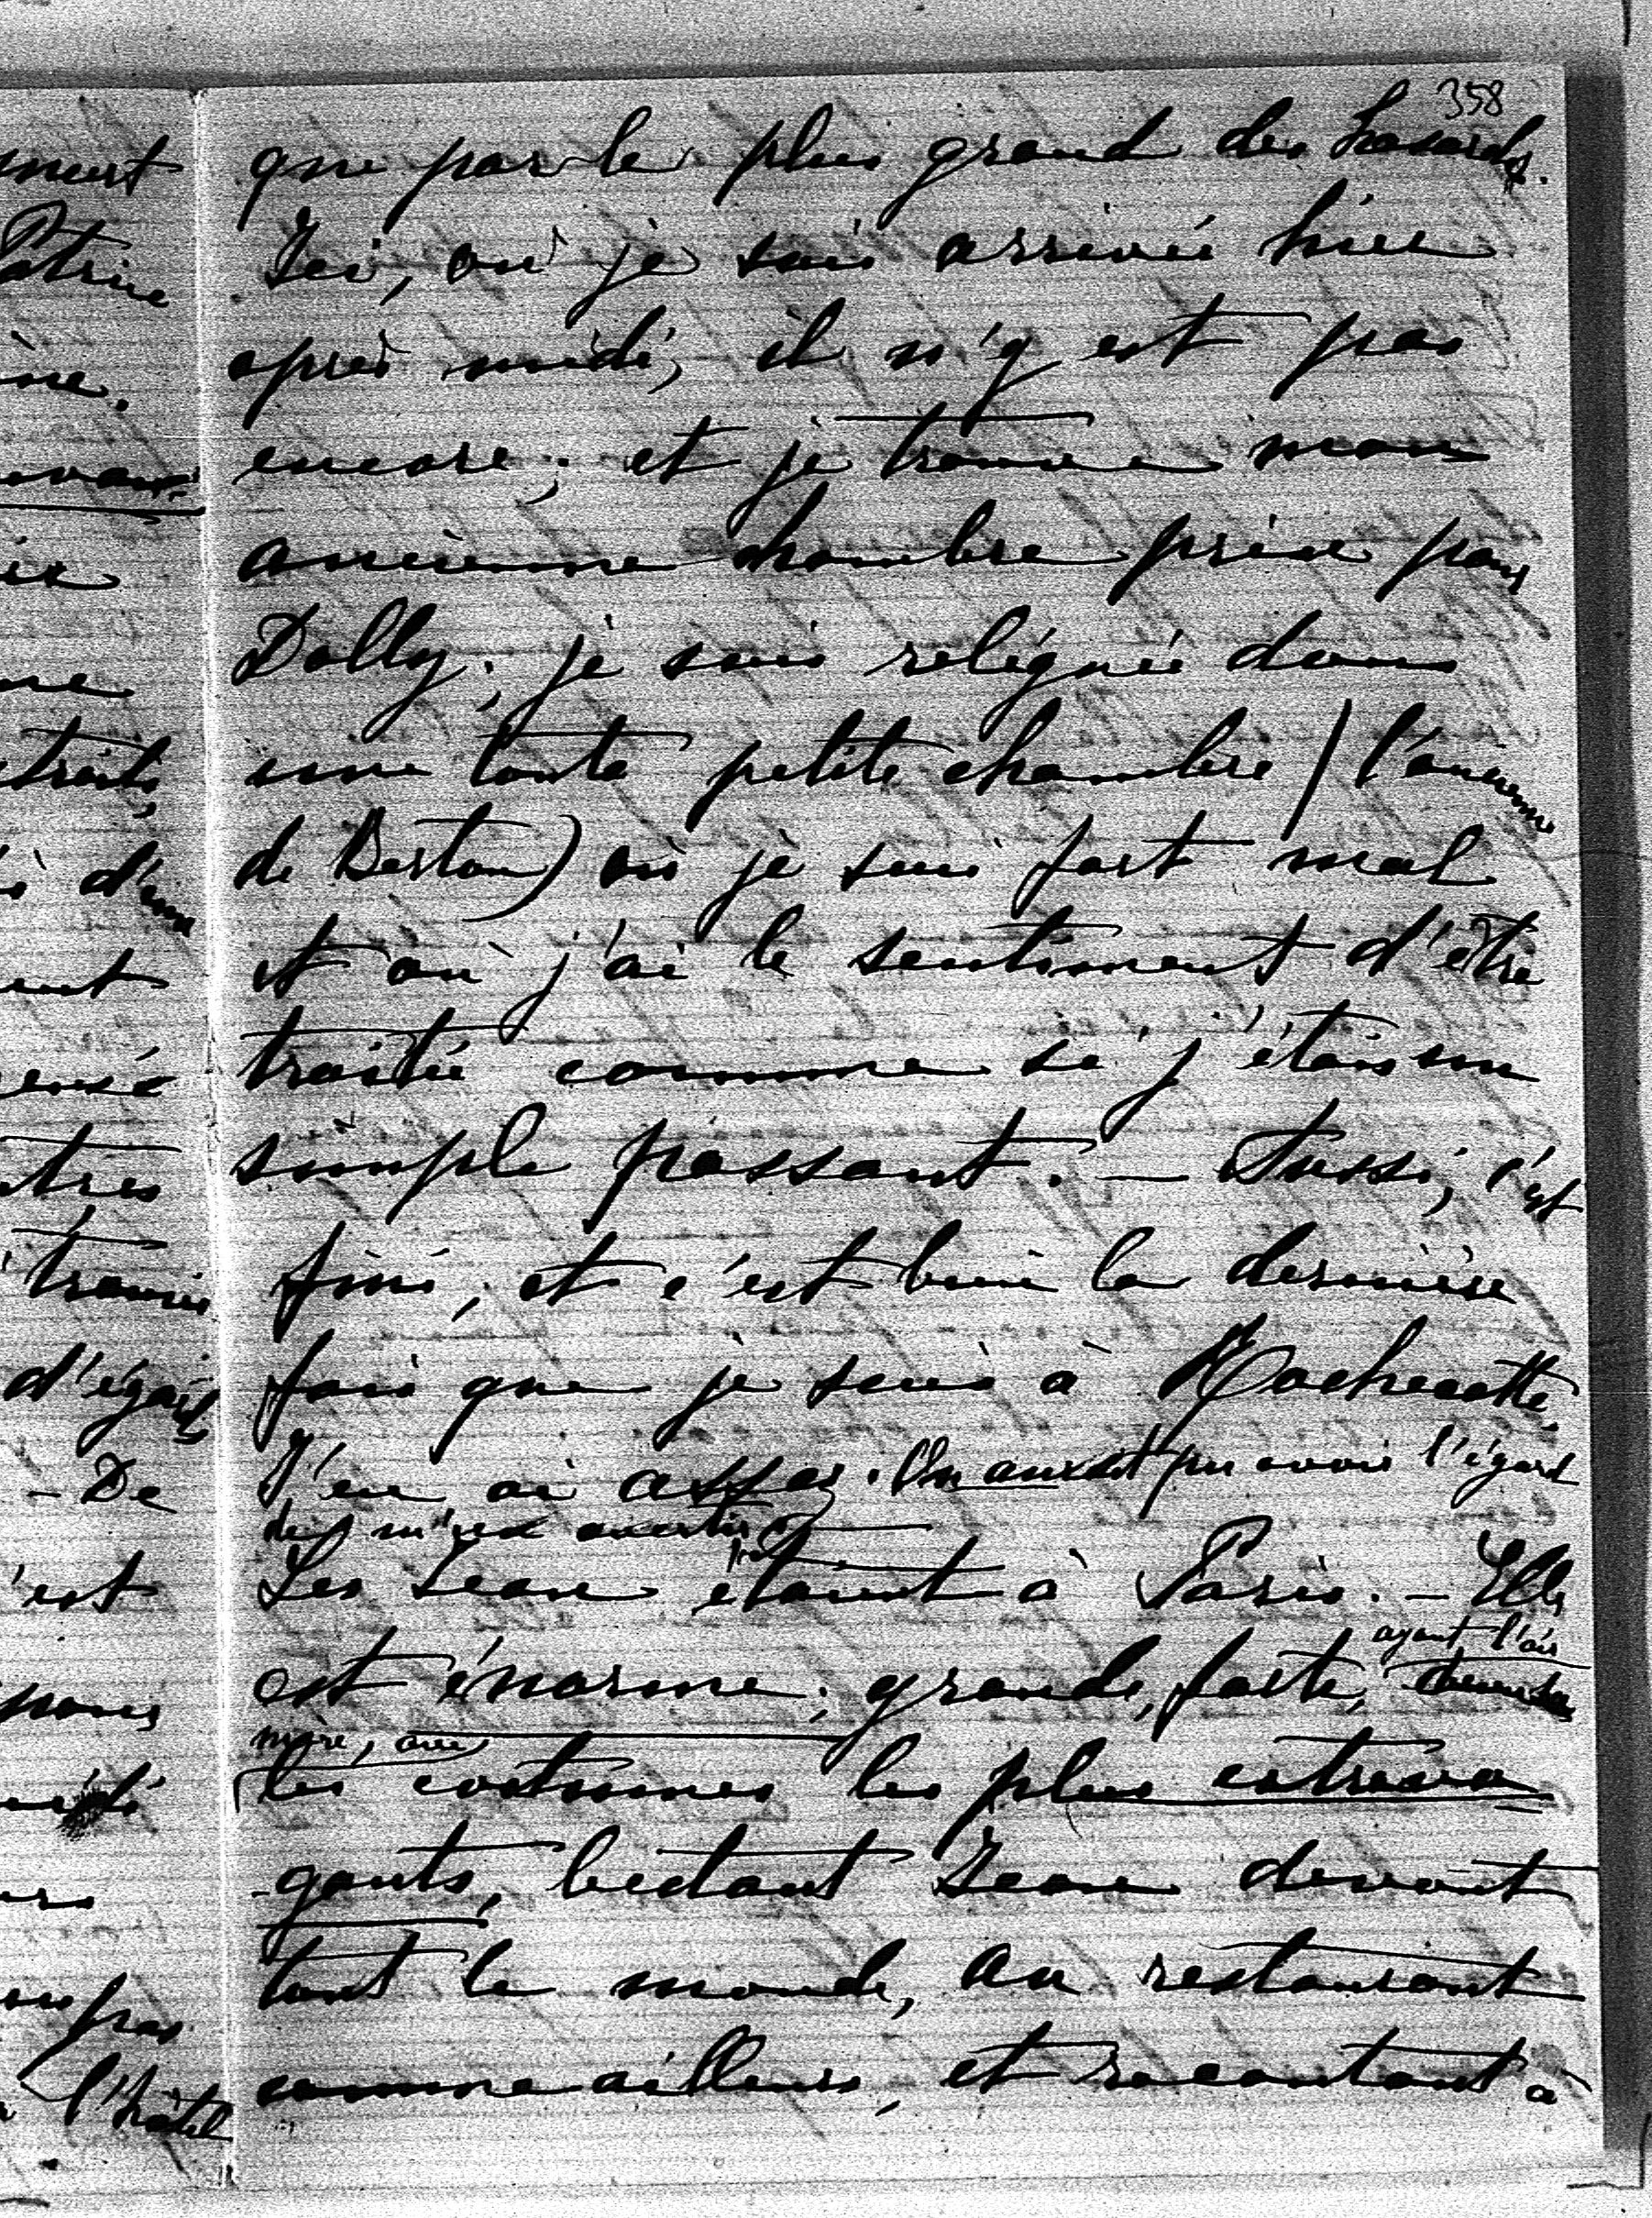 358
que par le plus grand des hasards.
Ici, où je suis arrivée hier
après midi, il n'y est pas
encore; et je trouve mon
ancienne chambre prise par
Dolly; je suis reléguée dans
une toute petite chambre (l'ancienne
de) où je suis fort mal
et où j'ai le sentiment d'être
traitée comme si j'étais un
simple passant. — Aussi, c'est
fini, et c'est bien la dernière
fois que je suis à Rochecotte.
J'en ai assez. On aurait pu avoir l'égard
de m'en avertir
Les Jean étaient à Paris. — Elle
ayant l'air
est énorme; grande, forte,
mère, avec
les costumes les plus extrava
gants, bectant Jean devant
tout le monde, au restaurant
comme ailleurs, et racontant à
ment
Patrie
ne.
d'une
trouvé
d'égards
- De
'est
nous
pas
l'hôtel